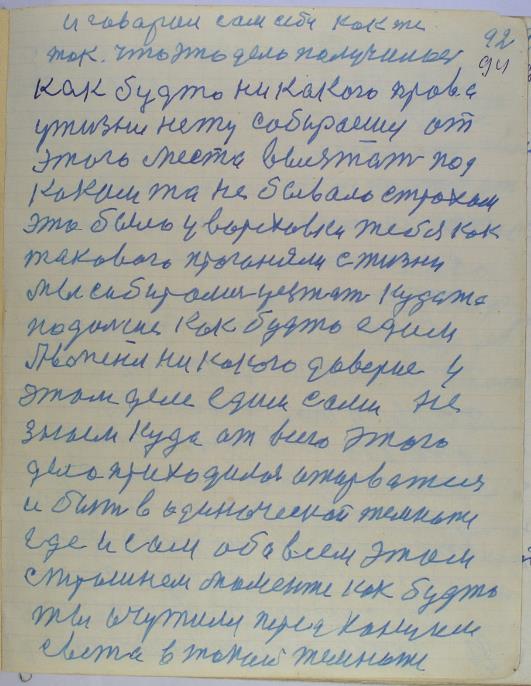 и говарил сам себя как же 92
так. что это дело получилося 94
как будто никакого права
у жизни нету собираеш от
этого места вылятат под
каком та не бывало страхом
это было у варховки тебя как
такового проганяли с жизни
мы собиралися уезжат куда та
подолше как будто едим
никакого даверие у
этом деле едим сами не
знаем куда от всего этого
дела приходился отарватся
и быт в одиначеской темноте
где и сам оба всем этом
страшнем моменте как будто
ты очутился перед
света в такой темноте